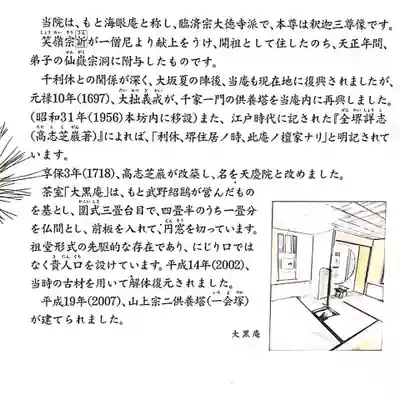 当院は、もと海眼庵と称し、臨済宗大徳寺派で、本尊は釈迦三尊像です。
笑嶺宗訢が一僧尼より献上をうけ、開祖として住したのち、天正年間、
弟子の仙嶽宗洞に附与したものです。
千利休との関係が深く、大坂夏の陣後、当庵も現在地に復興されましたが、
元禄10年(1697)、大拙義戒が、千家一門の供養塔を当庵内に再興しました。
(昭和31年(1956)本坊内に移設)また、江戸時代に記された『全堺詳志
(高志芝巖著)』によれば、「利休、堺住居ノ時、此庵ノ檀家ナリ」と明記されて
います。
享保3年(1718)、高志芝巖が改築し、名を天慶院と改めました。
茶室「大黒庵」は、もと武野紹鷗が営んだもの
を基とし、囲式三畳台目で、四畳半のうち一畳分
を仏間とし、前板を入れて、円窓を切っています。
祖堂形式の先駆的な存在であり、にじり口では
なく貴人口を設けています。平成14年(2002)、
当時の古材を用いて解体復元されました。
平成19年(2007)、山上宗二供養塔(一会塚)
が建てられました。
大黒庵